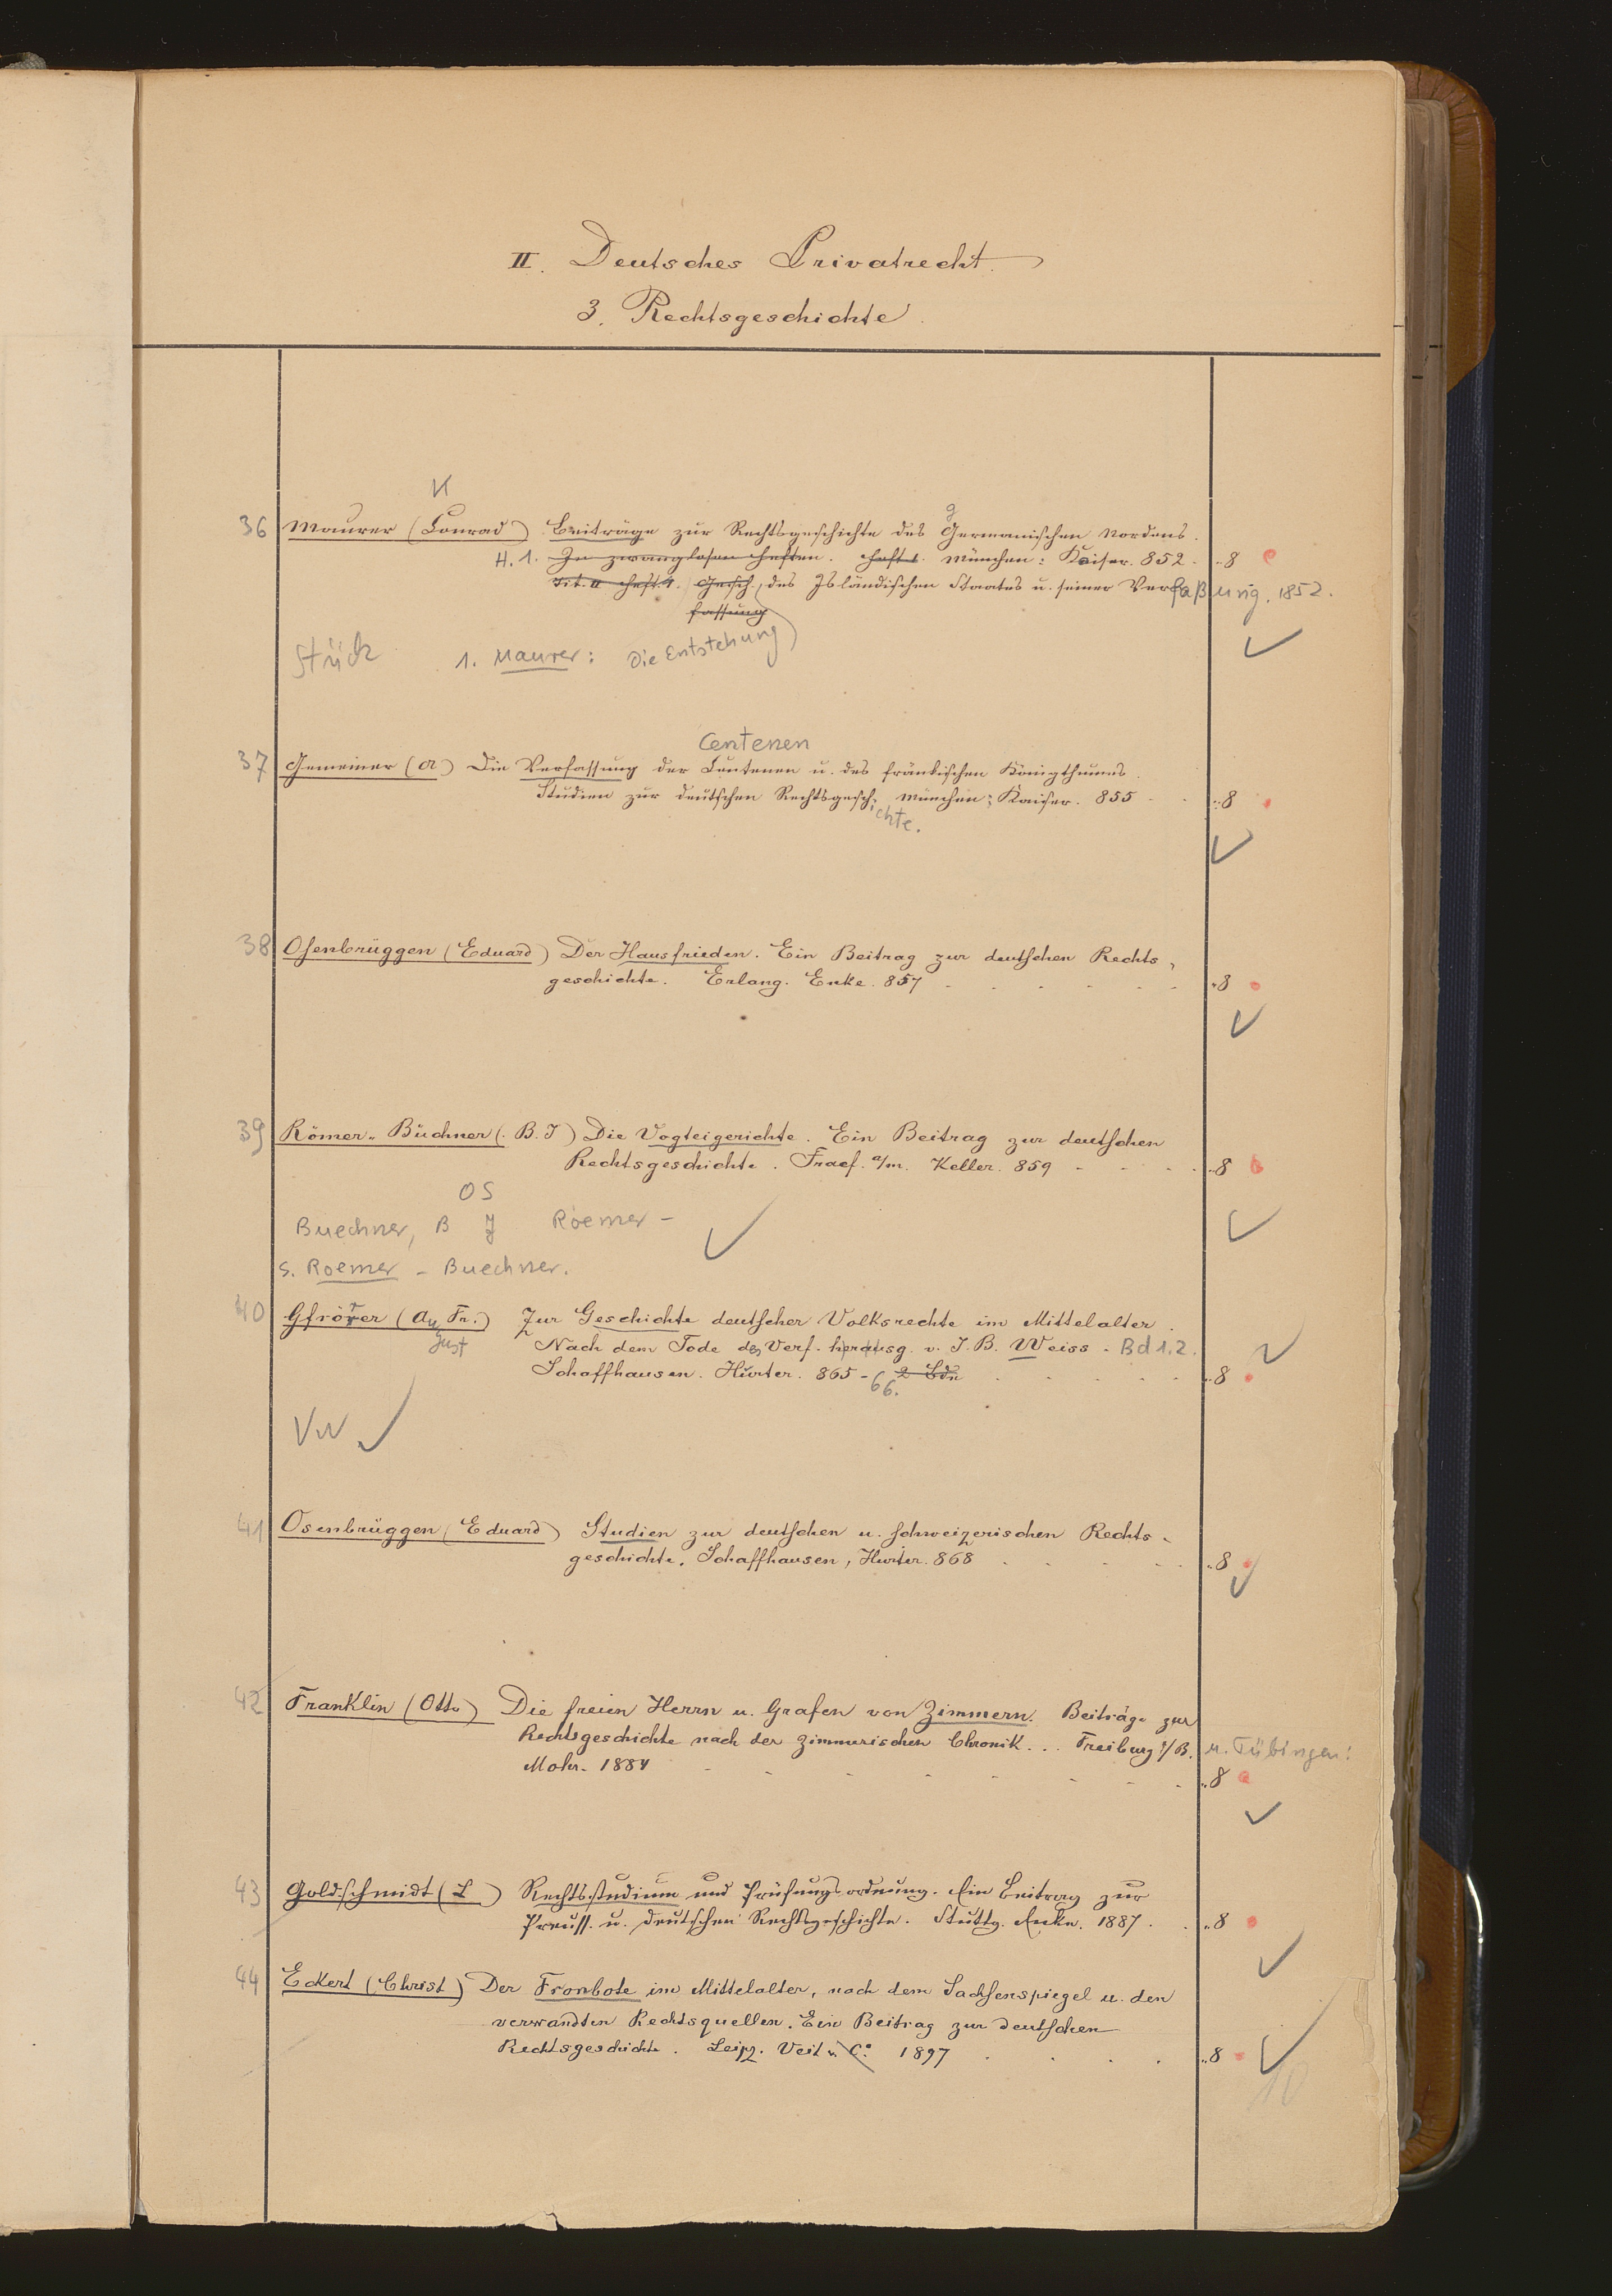 II. Deutsches Privatrecht.
3. Rechtsgeschichte.
K
g
36 Maurer (Conrad) Beiträge zur Rechtsgeschichte des Germanischen Nordens.
H. 1. In zwanglosen Heften. Heft 1. München: Kaiser. 852. 8
Tit. u Heft 1. Gesch. des Isländischen Staates u. seiner Verfaßung. 1852.
fassung
Stück 1. Maurer: Die Entstehung
Centenen
37 Gemeiner (A) Die Verfassung der Centenen u. des fränkischen Königthums.
Studien zur deutschen Rechtsgesch. München: Kaiser. 855 8
ichte.
38 Osenbrüggen (Eduard) Der Hausfrieden. Ein Beitrag zur deutschen Rechts-
geschichte. Erlang. Enke. 857 8
39 Römer-Büchner (B. J) Die Vogteigerichte. Ein Beitrag zur deutschen
Rechtsgeschichte. Francf. a/m. Keller. 859 8
OS
Buechner, B J Roemer-
s. Roemer-Buechner.
40 Gfrörer (Au Fr.) Zur Geschichte deutscher Volksrechte im Mittelalter.
gust Nach dem Tode des Verf. herausg. v. J. B. Weiss. Bd 1.2.
Schaffhausen. Hurter. 865-66. 2 Bde 8
VW
41 Osenbrüggen (Eduard) Studien zur deutschen u. schweizerischen Rechts-
geschichte. Schaffhausen, Hurter. 868 8
42 Franklin (Otto) Die freien Herrn u. Grafen von Zimmern. Beiträge zur
Rechtsgeschichte nach der Zimmerischen Chronik... Freiburg i/B. u. Tübingen:
Mohr. 1884 8
43 Goldschmidt (L) Rechtsstudium und Prüfungsordnung. Ein Beitrag zur
Preuss. u. deutschen Rechtsgeschichte. Stuttg. Enke. 1887. 8
44 Eckert (Christ) Der Fronbote im Mittelalter, nach dem Sachsenspiegel u. den
verwandten Rechtsquellen. Ein Beitrag zur deutschen
Rechtsgeschichte. Leipz. Veit u. Co. 1897 8
10